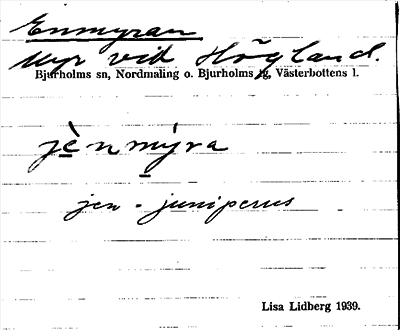 Enmyran
Myr vid Högland.
Bjurholms sn, Nordmaling o. Bjurholms tg, Västerbottens l.
jè̱nmýra
jen - juniperus
Lisa Lidberg 1939.